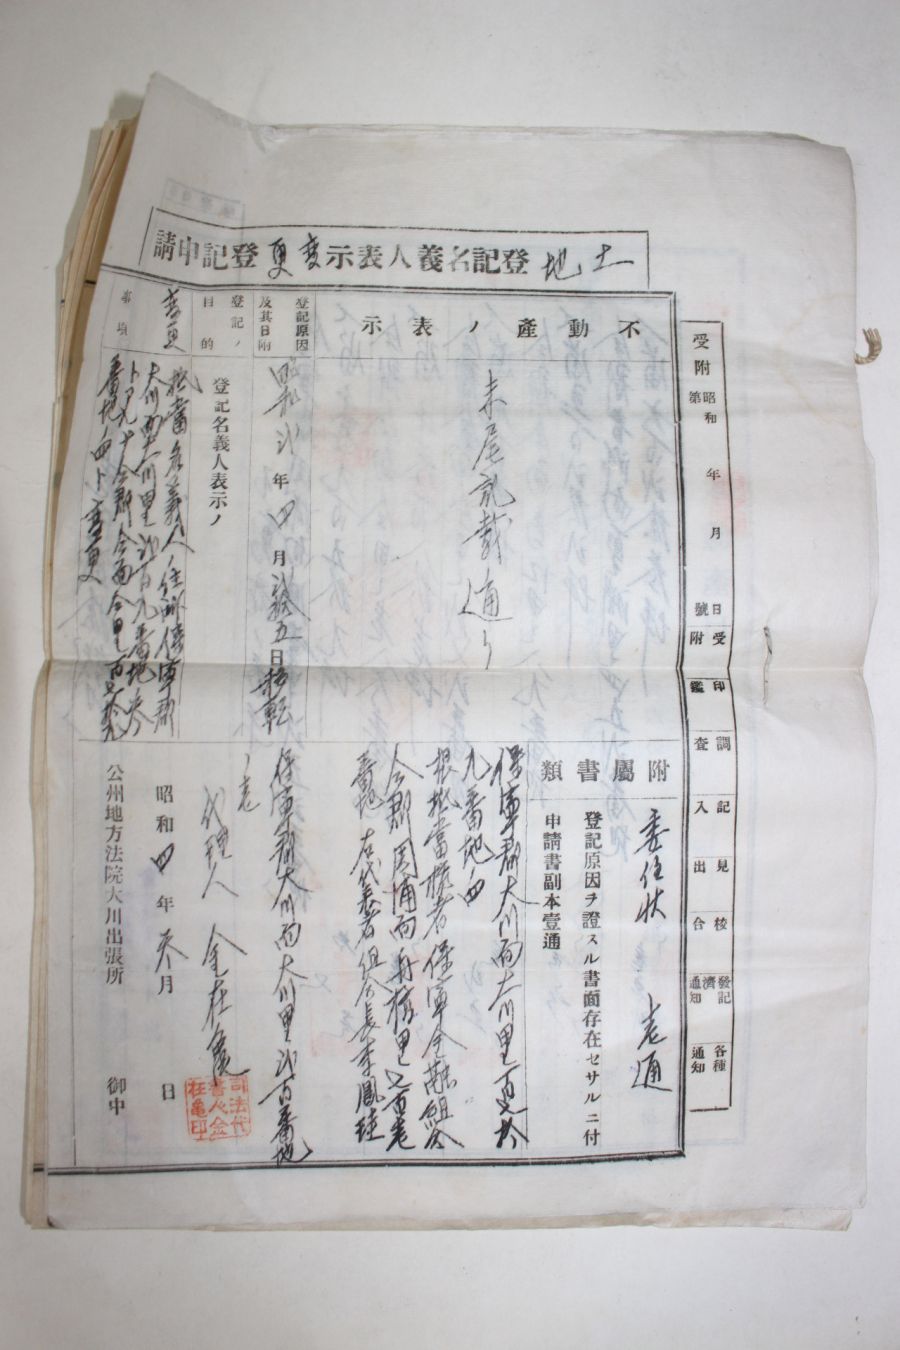 土地登記名義人表示變更登記申請
受附
昭和 年 月 日
第 號
受附
印鑑
調査
記入
見出
校合
登記濟通知
各種通知
不動產ノ表示
末尾記載ノ通リ
登記原因及其日附
昭和弐年四月弐拾五日移転
登記ノ目的
登記名義人表示ノ
變更
事項
抵當名義人ノ住所保寧郡
大川面大川里弐百九番地ノ参
トアルヲ仝郡仝面仝里
番地ノ四ト変更
附屬書類
委任狀 壱通
登記原因ヲ證スル書面存在セサルニ付
申請書副本壹通
保寧郡大川面大川里
九番地ノ四
根抵當權者 保寧金融組合
仝郡周浦面舟橋里
番地 右代表者組合長李鳳珪
保寧郡大川面大川里弐百番地
ノ壱
代理人 金在龜
司法代書人金在龜印
昭和四年 月 日
公州地方法院大川出張所 御中